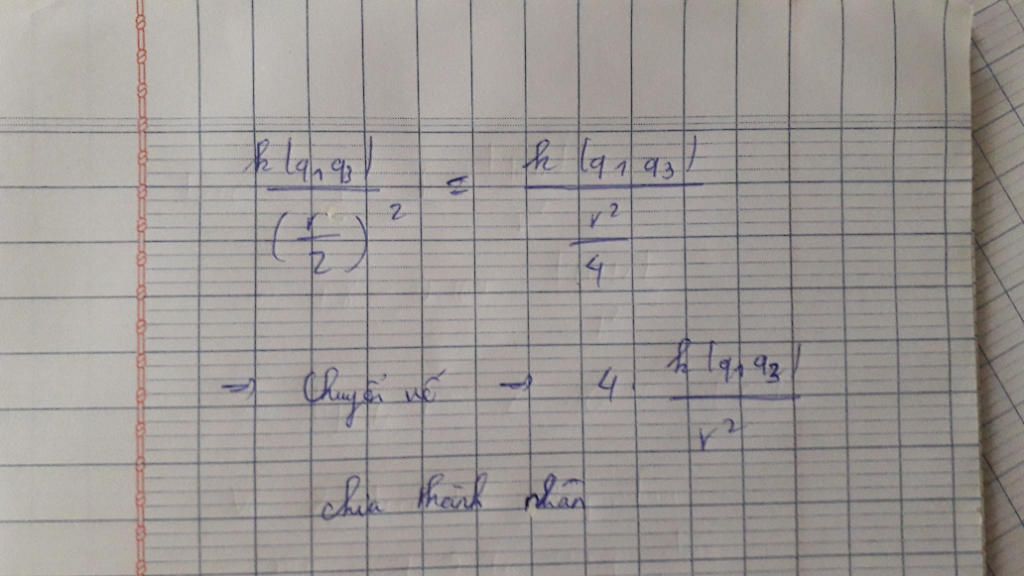 k|q₁q₃| / (r/2)² = k|q₁ q₃| / (r²/4)
=> Chuyển vế → 4. k|q₁q₃| / r²
chia thành nhân